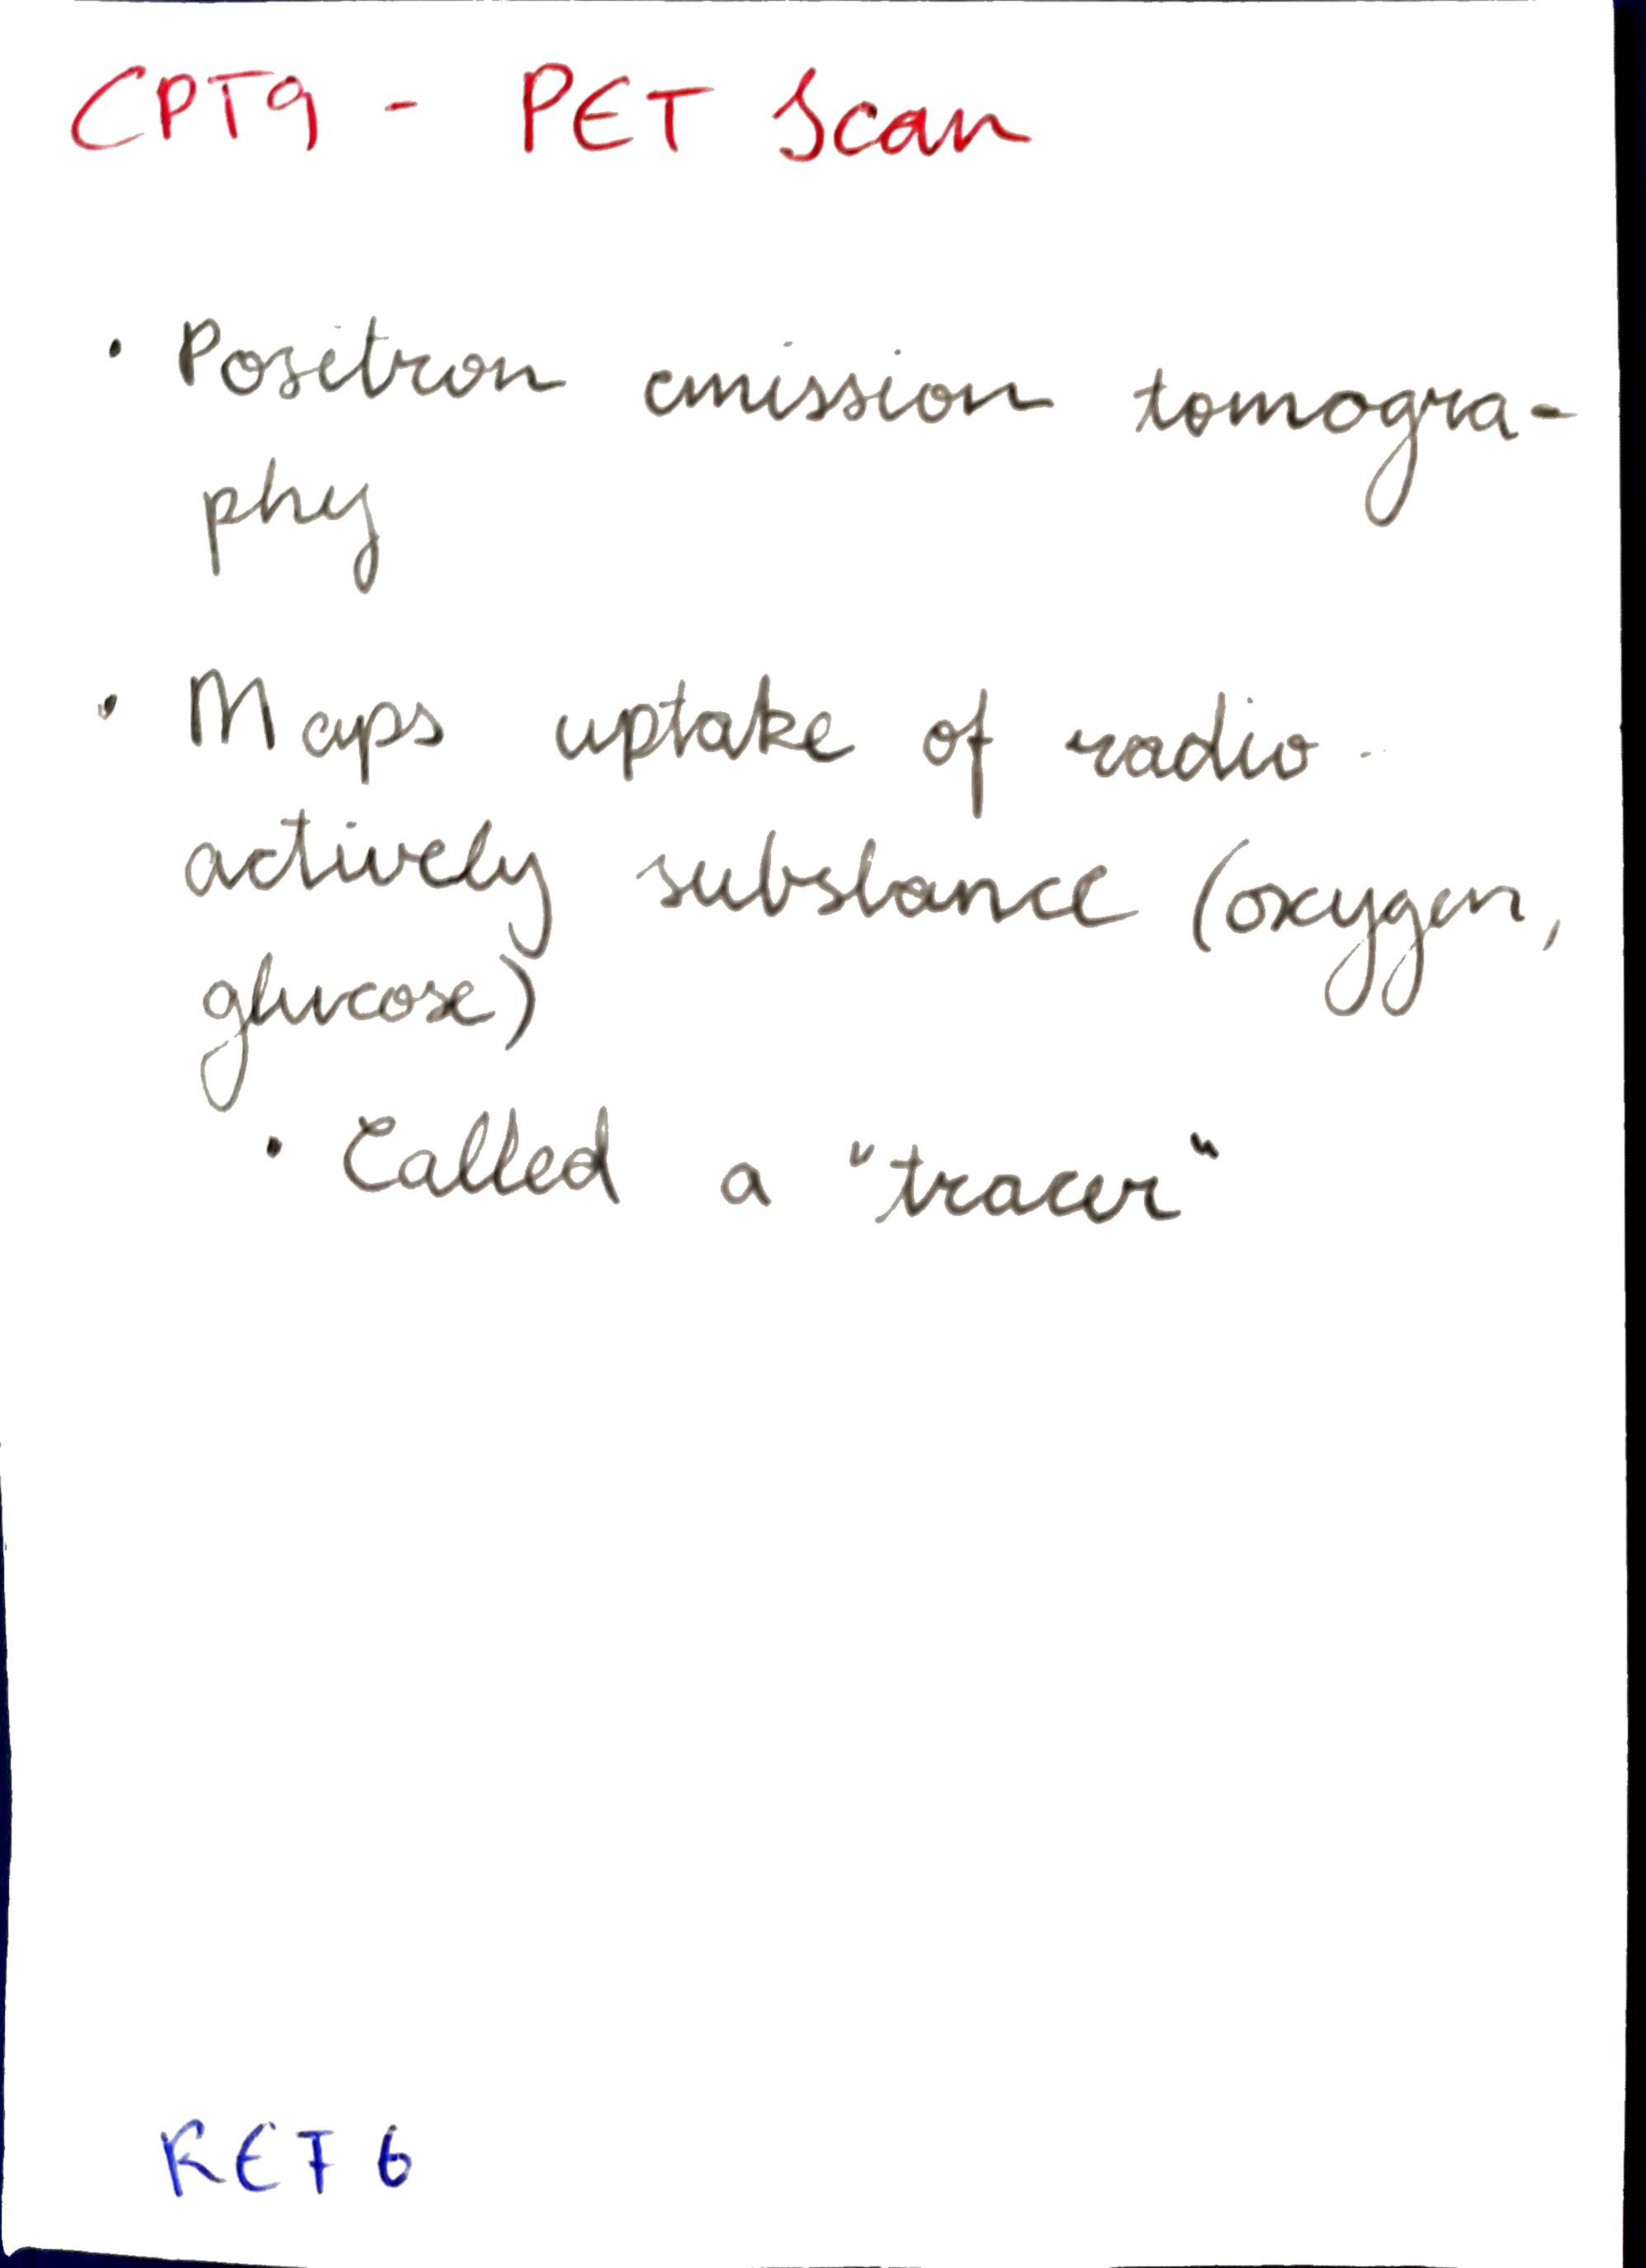 CPT9 - PET Scan
• Positron emission tomogra-
phy
• Maps uptake of radio-
actively substance (oxygen,
glucose)
• Called a "tracer"
REF 6